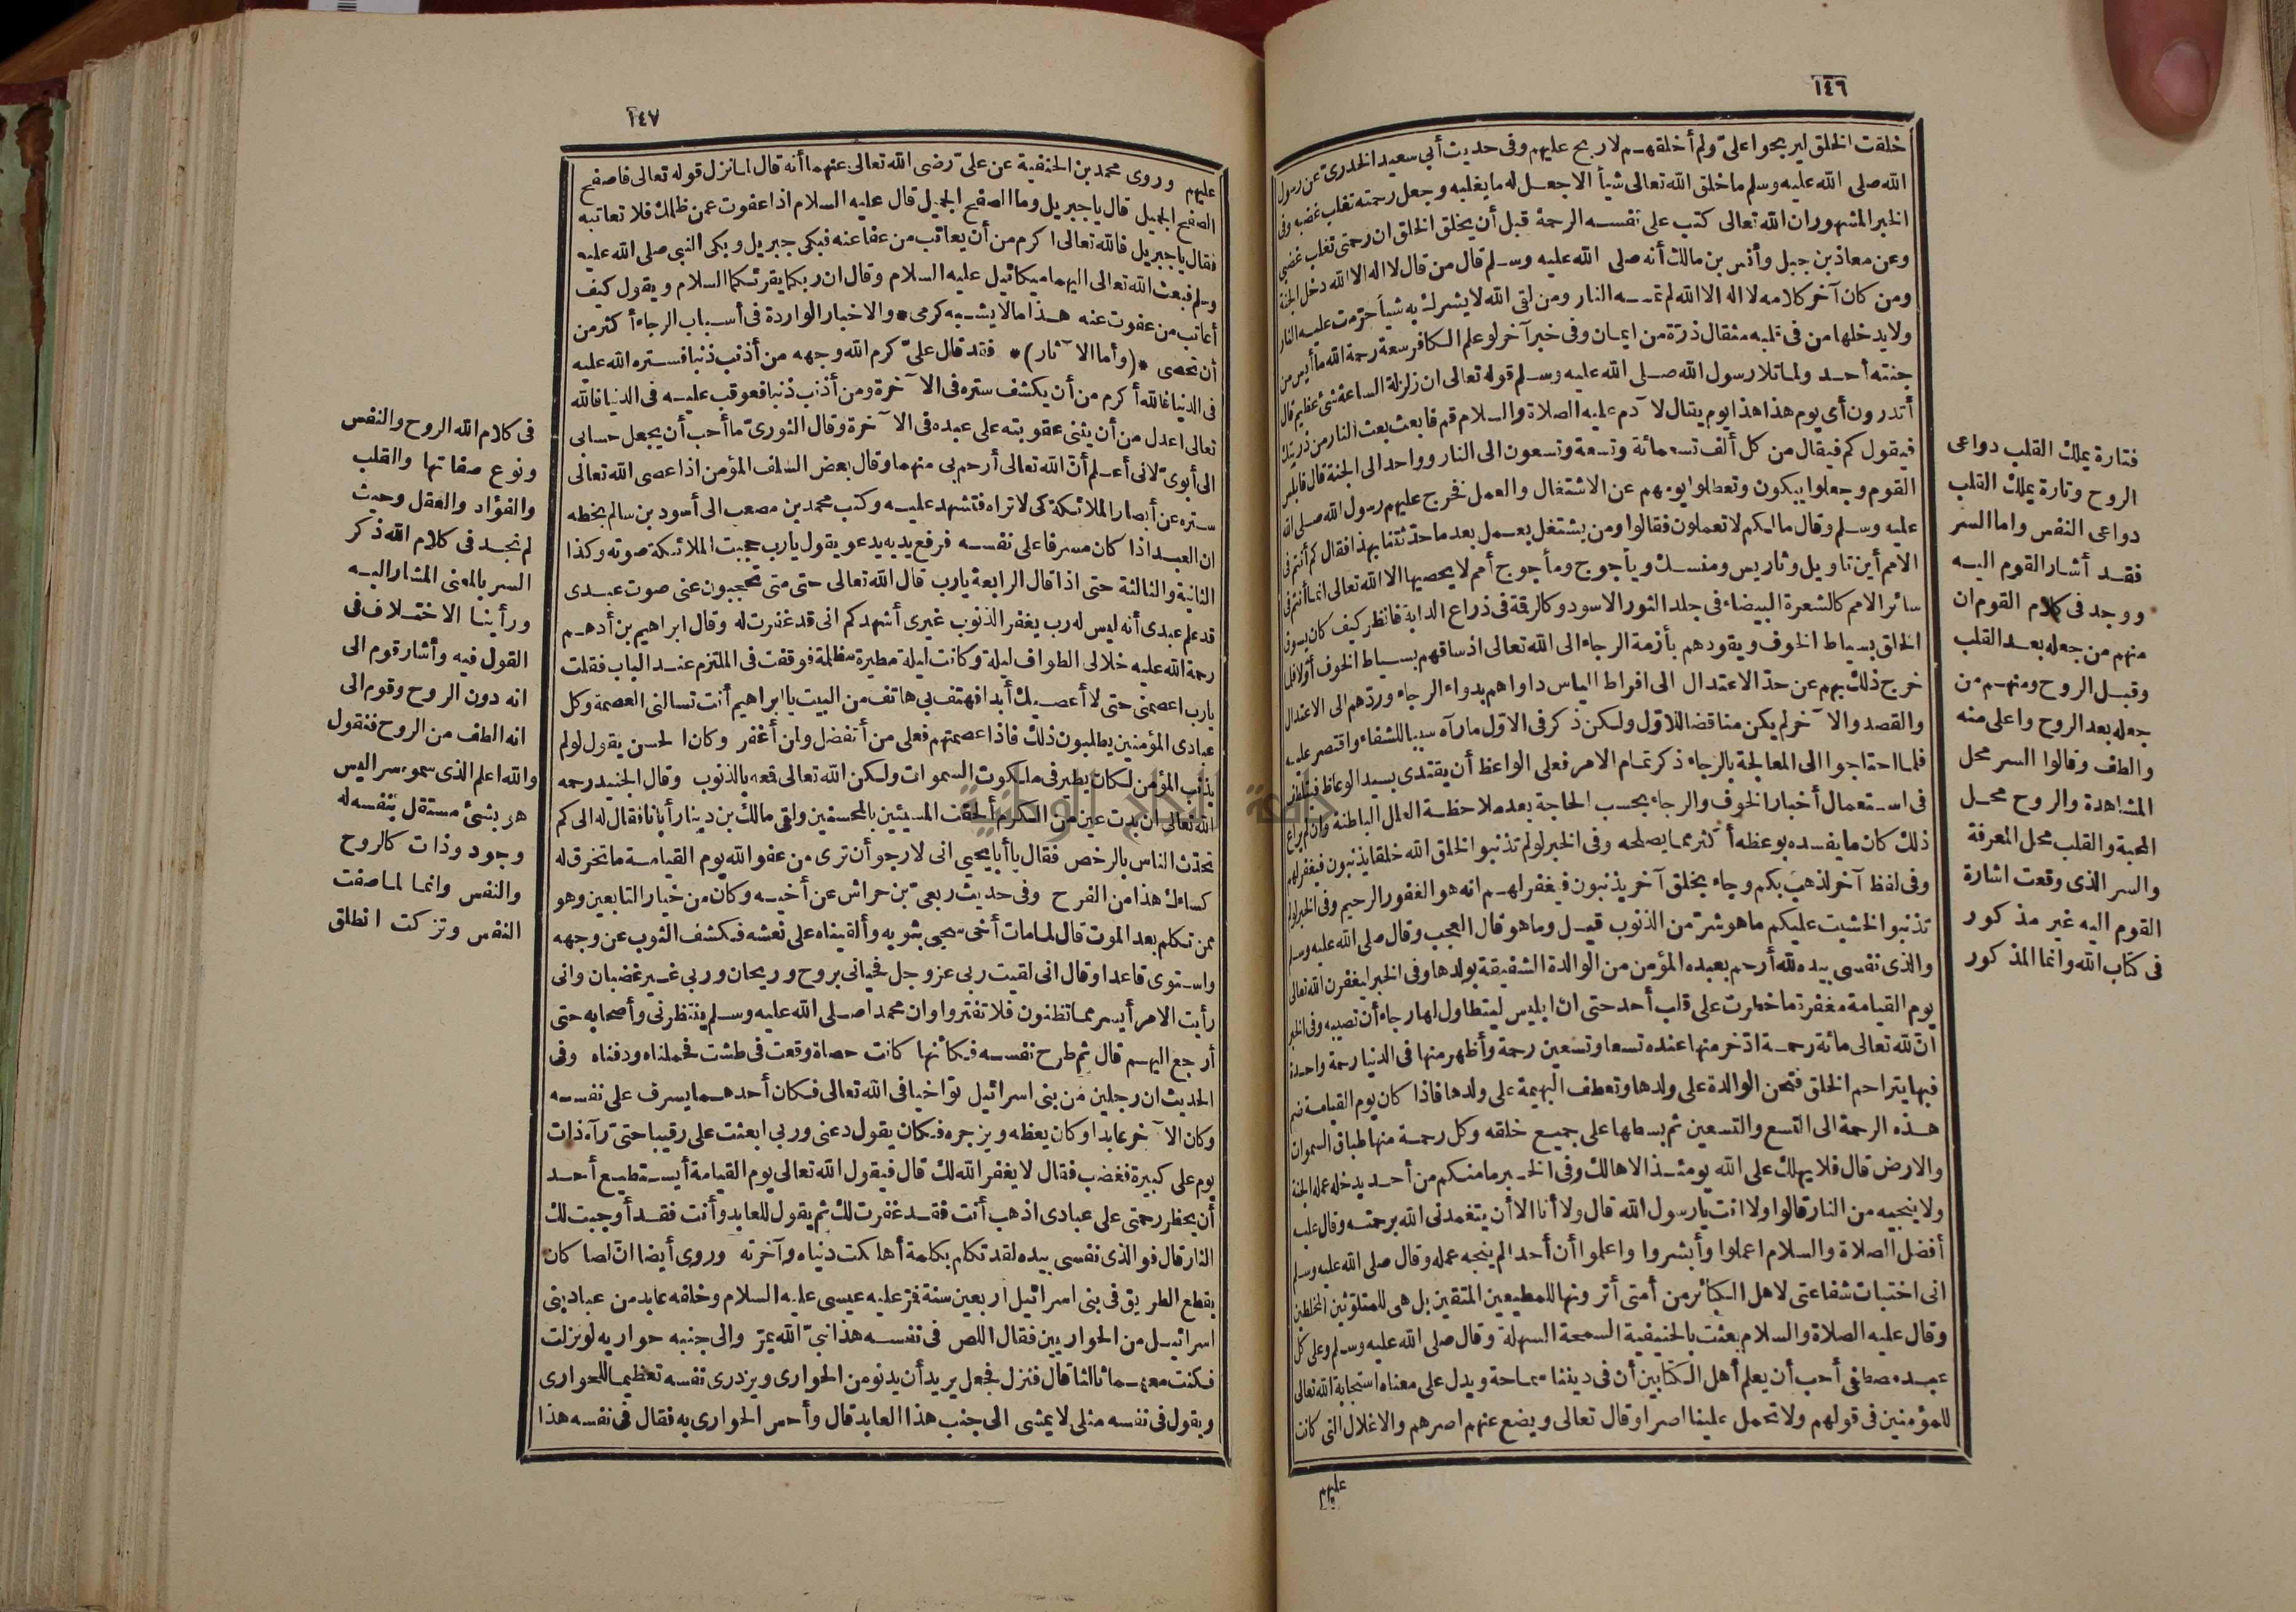 ١٤٦
خلقت الخلق ليربحوا على ولم أخلقهم لاربح عليهم وفى حديث أبى سعيد الخدرى عن رسول
الله صلى الله عليه وسلم ما خلق الله تعالى شيأ الا جعل له ما يغلبه وجعل رحمته تغلب غضبه وفى
الخبر المشهور ان الله تعالى كتب على نفسه الرحمة قبل أن يخلق الخلق ان رحمتى تغلب غضبى
وعن معاذ بن جبل وأنس بن مالك أنه صلى الله عليه وسلم قال من قال لا اله الا الله دخل الجنة
ومن كان آخر كلامه لا اله الا الله لم تمسه النار ومن لقى الله لا يشرك به شيأ حرّمت عليه النار
ولا يدخلها من فى قلبه مثقال ذرّة من ايمان وفى خبر آخر لو علم الكافر سعة رحمة الله ما أيس من
جنته أحد ولما تلا رسول الله صلى الله عليه وسلم قوله تعالى ان زلزلة الساعة شئ عظيم قال
أتدرون أى يوم هذا هذا يوم يقال لآدم عليه الصلاة والسلام قم فابعث بعث النار من ذريتك
فيقول كم فيقال من كل ألف تسعمائة وتسعة وتسعون الى النار وواحد الى الجنة قال فابلس
القوم وجعلوا يبكون وتعطلوا يومهم عن الاشتغال والعمل فخرج عليهم رسول الله صلى الله
عليه وسلم وقال مالكم لا تعملون فقالوا ومن يشتغل بعمل بعد ما حدثتنا بهذا فقال كم أنتم فى
الامم أين تاويل وثاريس ومنسك ويأجوج ومأجوج أمم لا يحصيها الا الله تعالى انما أنتم فى
سائر الامم كالشعرة البيضاء فى جلد الثور الاسود وكالرقة فى ذراع الدابة فانظر كيف كان يسوق
الخلق بسياط الخوف ويقودهم بأزمة الرجاء الى الله تعالى اذ ساقهم بسياط الخوف أوّلا فلما
خرج ذلك بهم عن حدّ الاعتدال الى افراط الياس داواهم بدواء الرجاء وردّهم الى الاعتدال
والقصد والآخر لم يكن مناقضا للاوّل ولكن ذكر فى الاوّل ما رآه سببا للشفاء واقتصر عليه
فلما احتاجوا الى المعالجة بالرجاء ذكر تمام الامر فعلى الواعظ أن يقتدى بسيد الوعاظ فيتلطف
فى استعمال أخبار الخوف والرجاء بحسب الحاجة بعد ملاحظة العلل الباطنة وان لم يراع
ذلك كان ما يفسده بوعظه أكثر مما يصلحه وفى الخبر لو لم تذنبوا لخلق الله خلقا يذنبون فيغفر لهم
وفى لفظ آخر لذهب بكم وجاء بخلق آخر يذنبون فيغفر لهم انه هو الغفور الرحيم وفى الخبر لو لم
تذنبوا لخشيت عليكم ما هو شرّ من الذنوب قيل وما هو قال العجب وقال صلى الله عليه وسلم
والذى نفسى بيده لله أرحم بعبده المؤمن من الوالدة الشفيقة بولدها وفى الخبر ليغفرن الله تعالى
يوم القيامة مغفرة ما خطرت على قلب أحد حتى ان ابليس ليتطاول لها رجاء أن تصيبه وفى الخبر
انّ لله تعالى مائة رحمة ادّخر منها عنده تسعا وتسعين رحمة وأظهر منها فى الدنيا رحمة واحدة
فبها يتراحم الخلق فتحن الوالدة على ولدها وتعطف البهيمة على ولدها فاذا كان يوم القيامة ضم
هذه الرحمة الى التسع والتسعين ثم بسطها على جميع خلقه وكل رحمة منها طباق السموات
والارض قال فلا يهلك على الله يومئذ الا هالك وفى الخبر ما منكم من أحد يدخله عمله الجنة
ولا ينجيه من النار قالوا ولا انت يا رسول الله قال ولا أنا الا أن يتغمدنى الله برحمته وقال عليه
أفضل الصلاة والسلام اعملوا وأبشروا واعلموا أن أحدا لم ينجه عمله وقال صلى الله عليه وسلم
انى اختبات شفاعتى لاهل الكبائر من أمتى أترونها للمطيعين المتقين بل هى للمتلوّثين المخلطين
وقال عليه الصلاة والسلام بعثت بالحنيفية السمحة السهلة وقال صلى الله عليه وسلم وعلى كل
عبد مصطفى أحب أن يعلم أهل الكتابين أن فى ديننا سماحة ويدل على معناه استجابة الله تعالى
للمؤمنين فى قولهم ولا تحمل علينا اصرا وقال تعالى ويضع عنهم اصرهم والاغلال التى كانت
عليهم
فتارة يملك القلب دواعى
الروح وتارة يملك القلب
دواعى النفس واما السر
فقد أشار القوم اليه
ووجد فى كلام القوم ان
منهم من جعله بعد القلب
وقبل الروح ومنهم من
جعله بعد الروح واعلى منه
والطف وقالوا السر محل
المشاهدة والروح محل
المحبة والقلب محل المعرفة
والسر الذى وقعت اشارة
القوم اليه غير مذكور
فى كتاب الله وانما المذكور
١٤٧
عليهم وروى محمد بن الحنفية عن علىّ رضى الله تعالى عنهما أنه قال لما نزل قوله تعالى فاصفح
الصفح الجميل قال يا جبريل وما الصفح الجميل قال عليه السلام اذا عفوت عمن ظلمك فلا تعاتبه
فقال يا جبريل فالله تعالى اكرم من أن يعاتب من عفا عنه فبكى جبريل وبكى النبى صلى الله عليه
وسلم فبعث الله تعالى اليهما ميكائيل عليه السلام وقال ان ربكما يقرئكما السلام ويقول كيف
أعاتب من عفوت عنه هذا ما لا يشبه كرمى * والاخبار الواردة فى أسباب الرجاء أكثر من
أن تحصى *(وأما الآثار)* فقد قال علىّ كرم الله وجهه من أذنب ذنبا فستره الله عليه
فى الدنيا فالله أكرم من أن يكشف ستره فى الآخرة ومن أذنب ذنبا فعوقب عليه فى الدنيا فالله
تعالى اعدل من أن يثنى عقوبته على عبده فى الآخرة وقال الثورىّ ما أحب أن يجعل حسابى
الى أبوىّ لانى أعلم أنّ الله تعالى أرحم بى منهما وقال بعض السلف المؤمن اذا عصى الله تعالى
ستره عن أبصار الملائكة كى لا تراه فتشهد عليه وكتب محمد بن مصعب الى أسود بن سالم بخطه
ان العبد اذا كان مسرفا على نفسه فرفع يديه يدعو يقول يا رب حجبت الملائكة صوته وكذا
الثانية والثالثة حتى اذا قال الرابعة يا رب قال الله تعالى حتى متى تحجبون عنى صوت عبدى
قد علم عبدى أنه ليس له رب يغفر الذنوب غيرى أشهدكم انى قد غفرت له وقال ابراهيم بن أدهم
رحمة الله عليه خلا لى الطواف ليلة وكانت ليلة مطيرة مظلمة فوقفت فى الملتزم عند الباب فقلت
يا رب اعصمنى حتى لا أعصيك أبدا فهتف بى هاتف من البيت يا ابراهيم أنت تسالنى العصمة وكل
عبادى المؤمنين يطلبون ذلك فاذا عصمتهم فعلى من أتفضل ولمن أغفر وكان الحسن يقول لو لم
يذنب المؤمن لكان يطير فى ملكوت السموات ولكن الله تعالى قمعه بالذنوب وقال الجنيد رحمه
الله تعالى ان بدت عين من الكرم ألحقت المسيئين بالمحسنين ولقى مالك بن دينار أبانا فقال له الى كم
تحدّث الناس بالرخص فقال يا أبا يحيى انى لارجو أن ترى من عفو الله يوم القيامة ما تخرق له
كساءك هذا من الفرح وفى حديث ربعىّ بن حراش عن أخيه وكان من خيار التابعين وهو
ممن تكلم بعد الموت قال لما مات أخى سجى بثوبه وألقيناه على نعشه فكشف الثوب عن وجهه
واستوى قاعدا وقال انى لقيت ربى عز وجل فحيانى بروح وريحان وربى غير غضبان وانى
رأيت الامر أيسر مما تظنون فلا تفتروا وان محمدا صلى الله عليه وسلم ينتظرنى وأصحابه حتى
أرجع اليهم قال ثم طرح نفسه فكأنها كانت حصاة وقعت فى طشت فحملناه ودفناه وفى
الحديث ان رجلين من بنى اسرائيل تواخيا فى الله تعالى فكان أحدهما يسرف على نفسه
وكان الآخر عابدا وكان يعظه ويزجره فكان يقول دعنى وربى ابعثت على رقيبا حتى رآه ذات
يوم على كبيرة فغضب فقال لا يغفر الله لك قال فيقول الله تعالى يوم القيامة أيستطيع أحد
أن يحظر رحمتى على عبادى اذهب أنت فقد غفرت لك ثم يقول للعابد وأنت فقد أوجبت لك
النار قال فو الذى نفسى بيده لقد تكلم بكلمة أهلكت دنياه وآخرته وروى أيضا انّ لصا كان
يقطع الطريق فى بنى اسرائيل اربعين سنة فمرّ عليه عيسى عليه السلام وخلفه عابد من عباد بنى
اسرائيل من الحواريين فقال اللص فى نفسه هذا نبىّ الله يمرّ والى جنبه حواريه لو نزلت
فكنت معهما ثالثا قال فنزل فجعل يريد أن يدنو من الحوارى ويزدرى نفسه تعظيما للحوارى
ويقول فى نفسه مثلى لا يمشى الى جنب هذا العابد قال وأحس الحوارى به فقال فى نفسه هذا
فى كلام الله الروح والنفس
ونوع صفاتها والقلب
والفؤاد والعقل وحيث
لم نجد فى كلام الله ذكر
السر بالمعنى المشار اليه
ورأينا الاختلاف فى
القول فيه وأشار قوم الى
انه دون الروح وقوم الى
انه الطف من الروح فنقول
والله اعلم الذى سموه سرا ليس
هو بشئ مستقل بنفسه له
وجود وذات كالروح
والنفس وانما لما صفت
النفس وتزكت انطلق
جامعة النجاح الوطنية